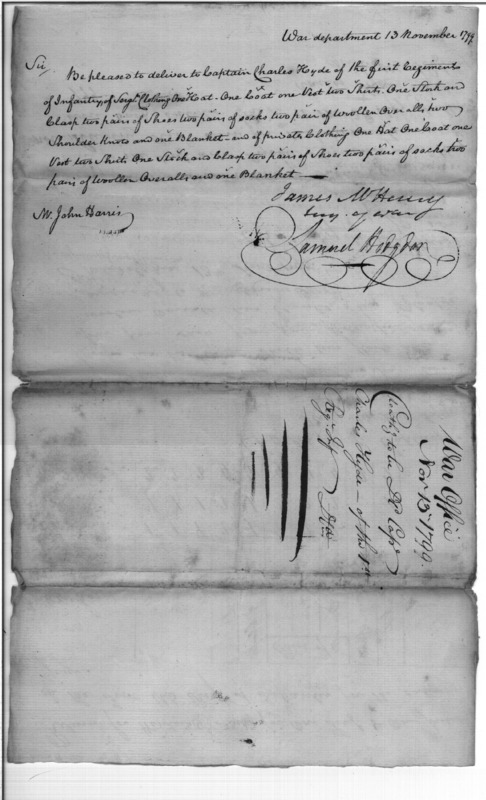 War department 13 November 1799.
Sir,
Be pleased to deliver to Captain Charles Hyde of the first Regiment
of Infantry, of Sergts Clothing One Hat - One Coat one Vest two Shirts. One Stock and
Clasp two pairs of Shoes two pairs of socks two pair of woollen Overalls, two
Shoulder Knots and one Blanket - and of privates Clothing One Hat One Coat one
Vest two Shirts, One Stock and Clasp two pairs of Shoes two pairs of socks two
pairs of Woollen Overalls and one Blanket -
James McHenry
Secy. of war
Mr. John Harris
Samuel Hodgdon
War Office
Nov 13th 1799.
Clothg to be Dd Capt
Charles Hyde - of the 1st
Regt Inf